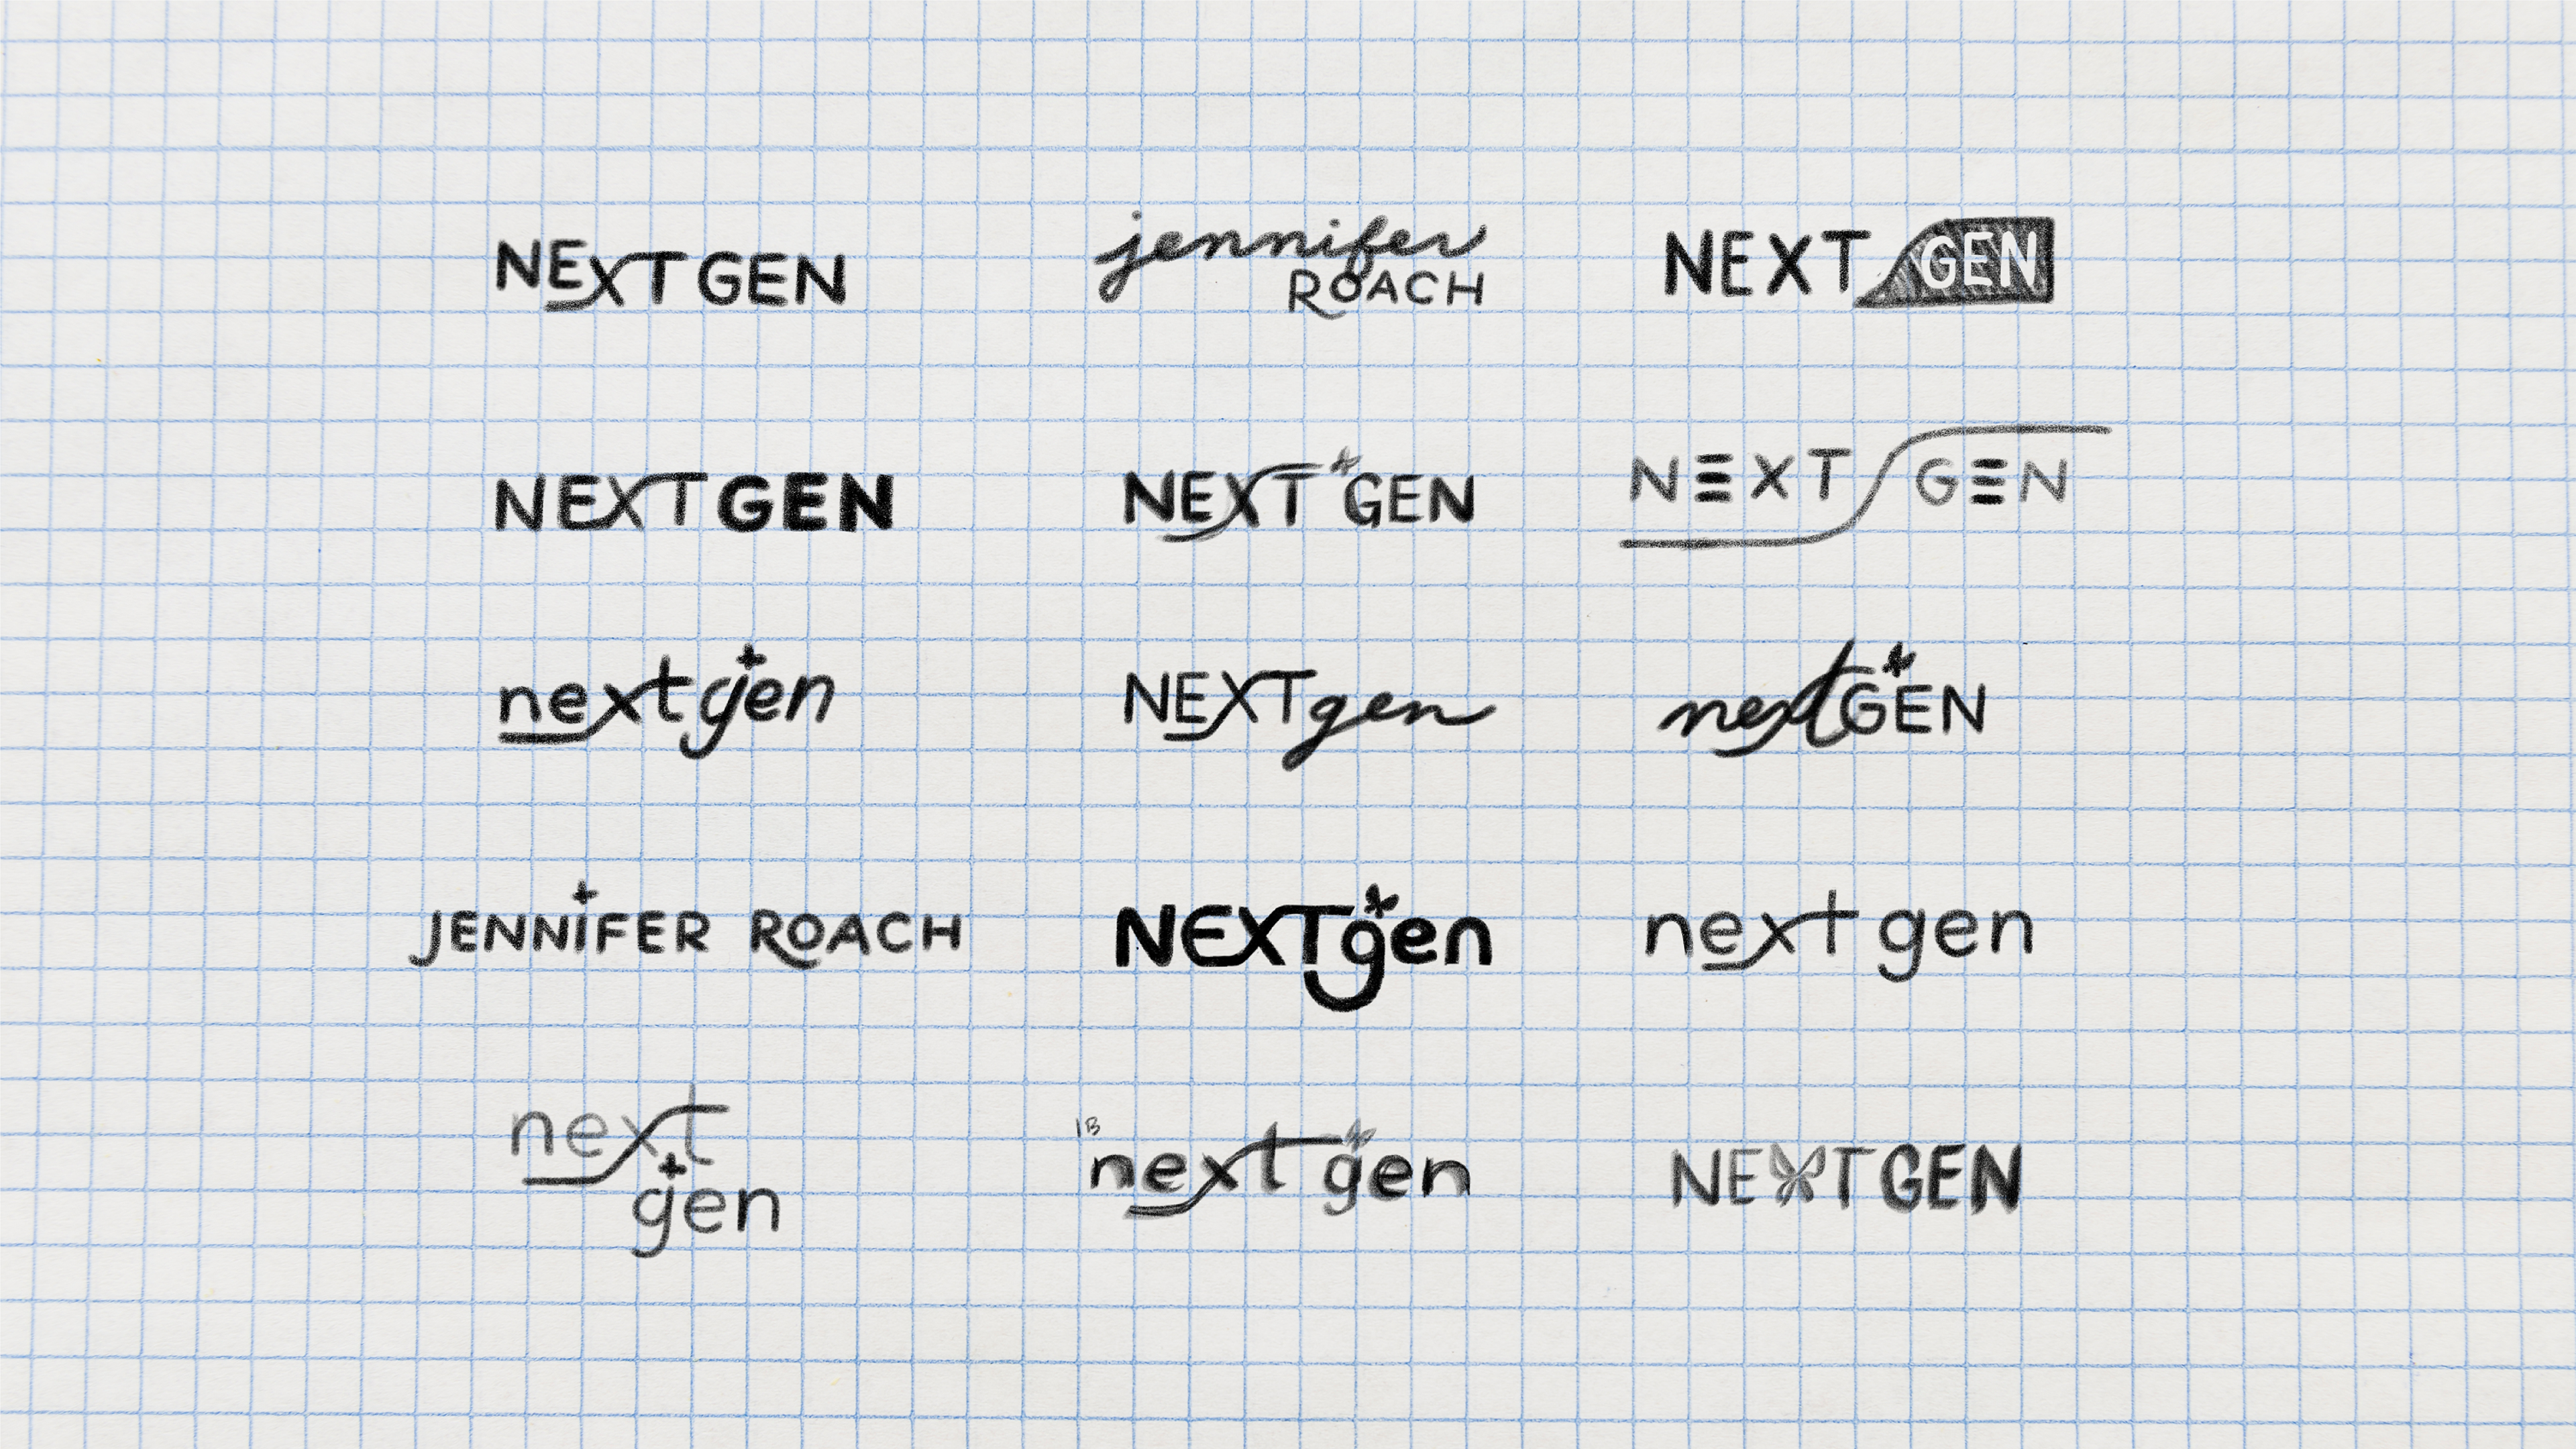 NEXT GEN
jennifer
ROACH
NEXT GEN
NEXT GEN
NEXT GEN
NEXT GEN
next gen
NEXT gen
next GEN
JENNiFER ROACH
NEXT gen
next gen
next
gen
1B
next gen
NEXT GEN